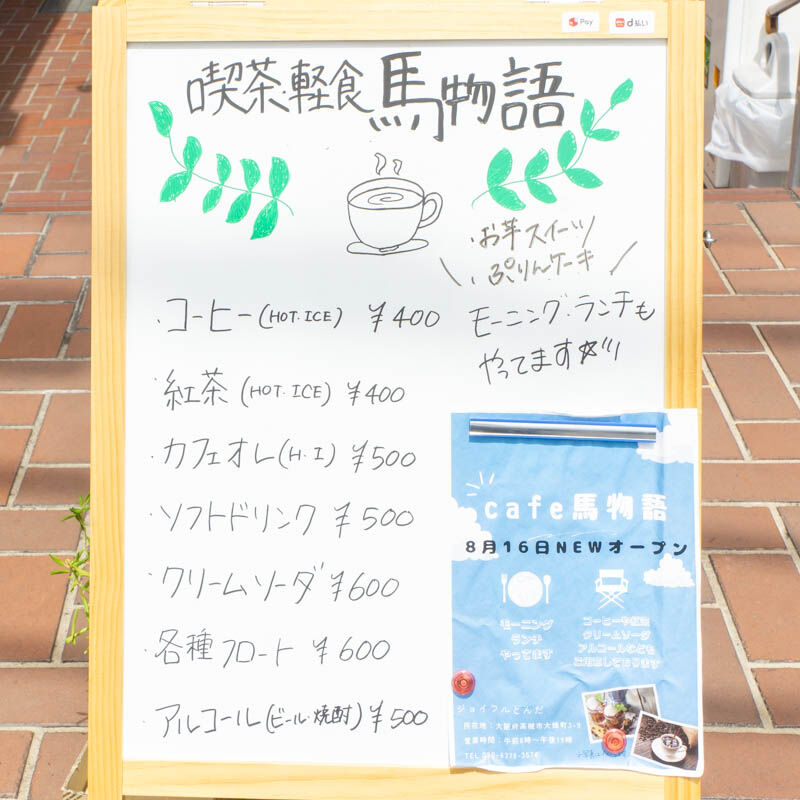 Pay
d払い
喫茶・軽食 馬物語
・お芋スイーツ
・ぷりんケーキ
モーニング・ランチも
やってます☆
・コーヒー(HOT・ICE) ¥400
・紅茶(HOT・ICE) ¥400
・カフェオレ(H・I) ¥500
・ソフトドリンク ¥500
・クリームソーダ ¥600
・各種フロート ¥600
・アルコール(ビール・焼酎) ¥500
cafe馬物語
8月16日NEWオープン
モーニング
ランチ
やってます
コーヒーや紅茶
クリームソーダ
アルコールなども
ご用意しております
ジョイフルとんだ
所在地:大阪府高槻市大畑町3-2
営業時間:午前8時〜午後11時